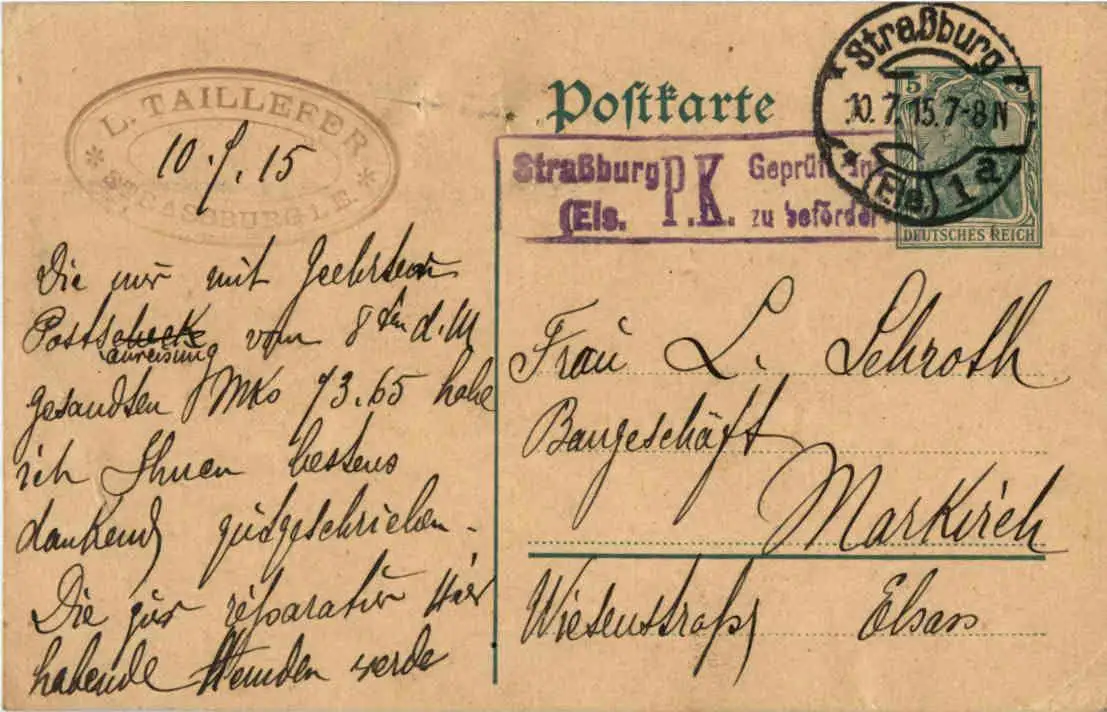 L. TAILLEFER
* STRASSBURG I. E. *
10.7.15
Die mir mit geehrter
Postscheck vom 8ten d. M
anweisung
gesandten Mks 73.65 habe
ich Ihnen bestens
dankend gutgeschrieben.
Die zur réparatur hier
habende Hemden werde
Postkarte
Straßburg P.K. Geprüft
(Els. zu beförder
* Straßburg *
10.7.15.7-8N
* (Els.) 1 a
5
DEUTSCHES REICH
Frau L. Schroth
Baugeschäft
Markirch
Wiesenstraße Elsass